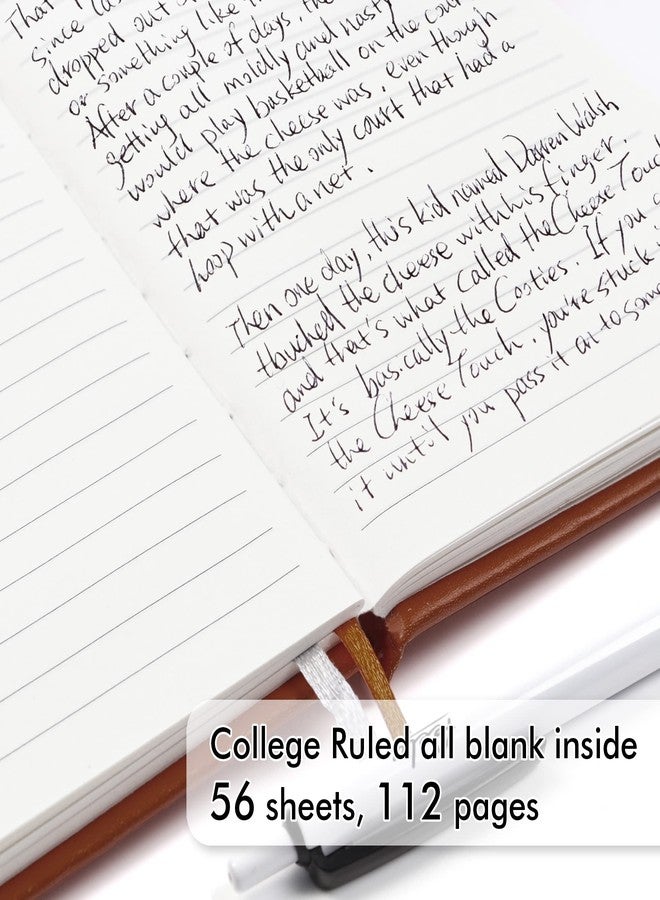 That
since
dropped out
or something like
After a couple of days, the
getting all moldly and nasty
would play basketball on the cour
where the cheese was, even though
that was the only court that had a
hoop with a net.
Then one day, this kid named Darren Walsh
touched the cheese with his finger,
and that's what called the Cheese Touc
It's basically the Cooties. If you g
the Cheese Touch, you're stuck
it until you pass it on to som
College Ruled all blank inside
56 sheets, 112 pages